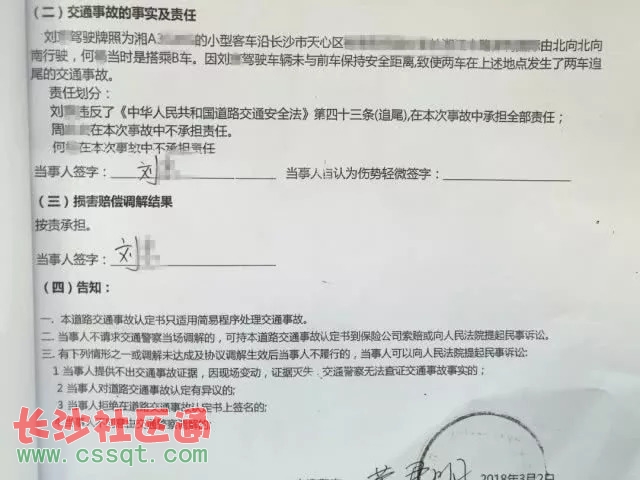 （二）交通事故的事实及责任
刘 驾驶牌照为湘A3 的小型客车沿长沙市天心区 由北向北向
南行驶，何 当时是搭乘B车。因刘 驾驶车辆未与前车保持安全距离,致使两车在上述地点发生了两车追
尾的交通事故。
责任划分：
刘 违反了《中华人民共和国道路交通安全法》第四十三条(追尾),在本次事故中承担全部责任；
周 在本次事故中不承担责任。
何 在本次事故中不承担责任
当事人签字： 刘 当事人自认为伤势轻微签字：
（三）损害赔偿调解结果
按责承担。
当事人签字： 刘
（四）告知：
一. 本道路交通事故认定书只适用简易程序处理交通事故。
二. 当事人不请求交通警察当场调解的，可持本道路交通事故认定书到保险公司索赔或向人民法院提起民事诉讼。
三. 有下列情形之一或调解未达成及协议调解生效后当事人不履行的，当事人可以向人民法院提起民事诉讼:
1 当事人提供不出交通事故证据，因现场变动，证据灭失，交通警察无法查证交通事故事实的；
2 当事人对道路交通事故认定有异议的;
3 当事人拒绝在道路交通事故认定书上签名的;
4 当事人不同意由交通警察调解的;
长沙社区通
www.cssqt.com
2018年3月2日